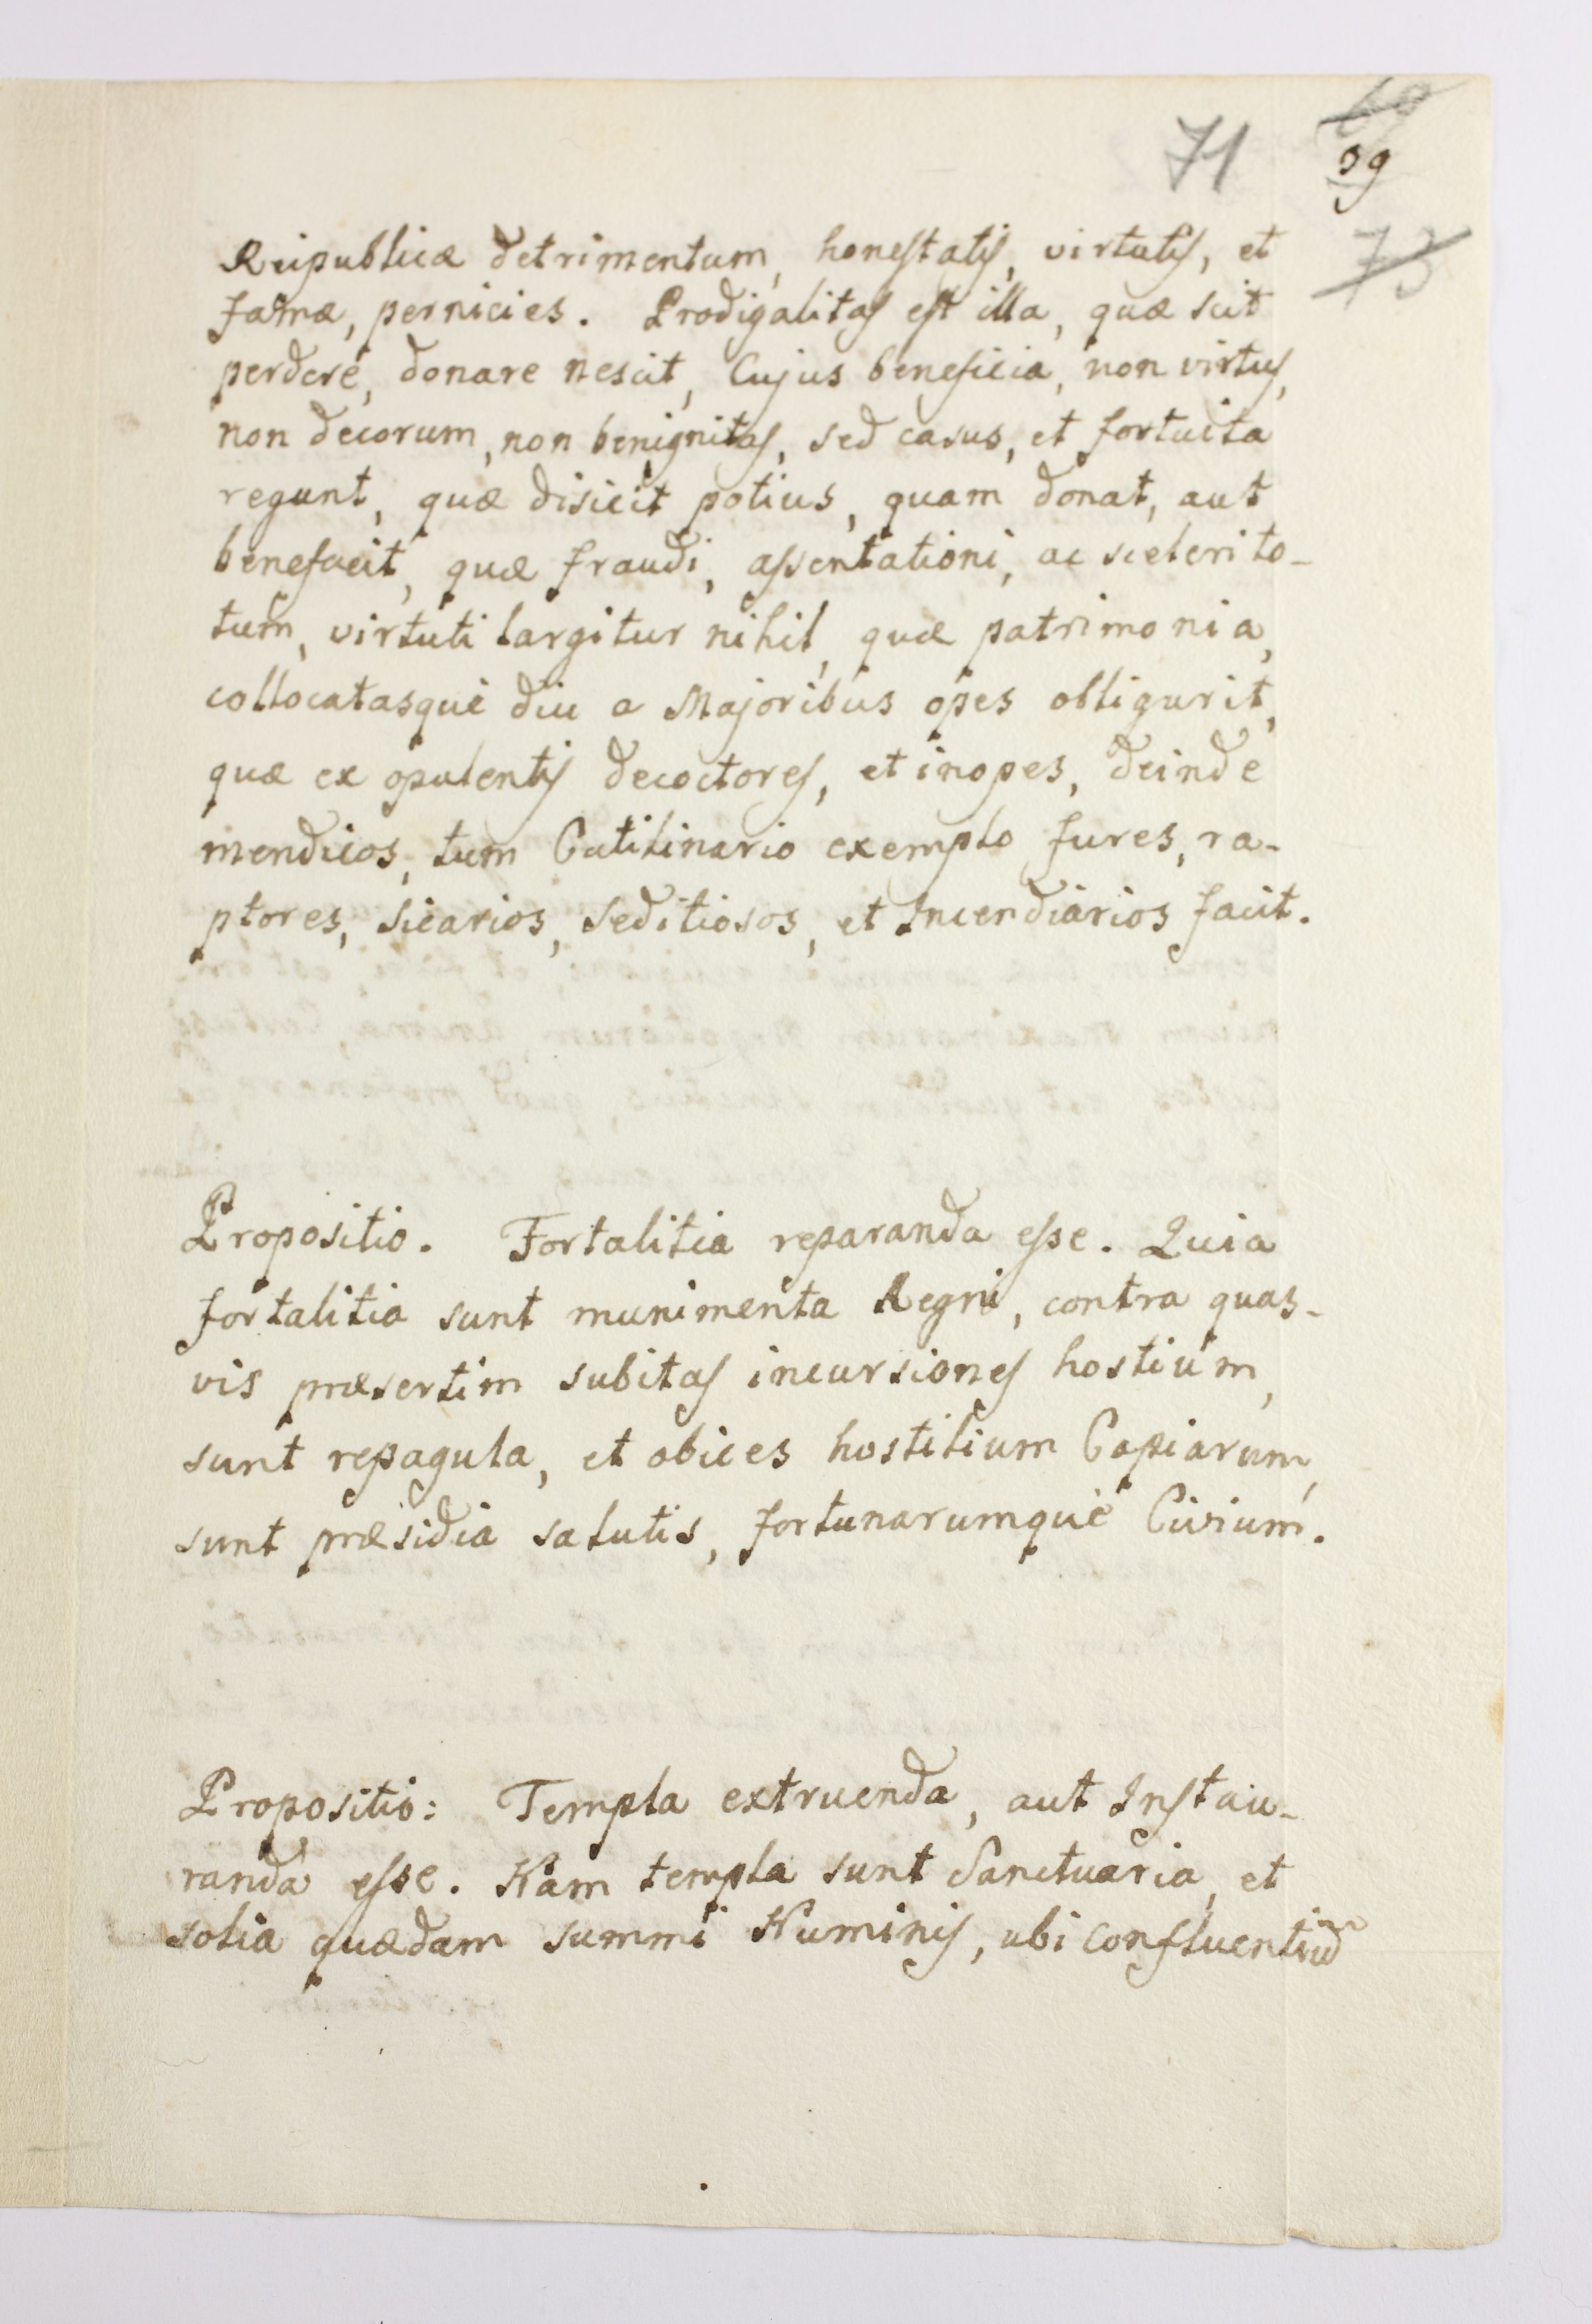 71
39
73
Reipublicæ detrimentum, honestatis, virtutis, et
famæ, pernicies. Prodigalitas est illa, quæ scit
perdere, donare nescit, Cujus beneficia, non virtus,
non decorum, non benignitas, sed casus, et fortuita
regunt, quæ disicit potius, quam donat, aut
benefacit, quæ fraudi, assentationi, ac sceleri to-
tum, virtuti largitur nihil, quæ patrimonia,
collocatasque diu a Majoribus opes obligurit,
quæ ex opulentis decoctores, et inopes, deinde
mendicos, tum Catilinario exemplo fures, ra-
ptores, sicarios, seditiosos, et Incendiarios facit.
Propositio. Fortalitia reparanda esse. Quia
fortalitia sunt munimenta Regni, contra quas-
vis præsertim subitas incursiones hostium,
sunt repagula, et obices hostilium Copiarum,
sunt præsidia salutis, fortunarumque Civium.
Propositio: Templa extruenda, aut Instau-
randa esse. Nam templa sunt Sanctuaria, et
solia quædam summi Numinis, ubi confluentiũ